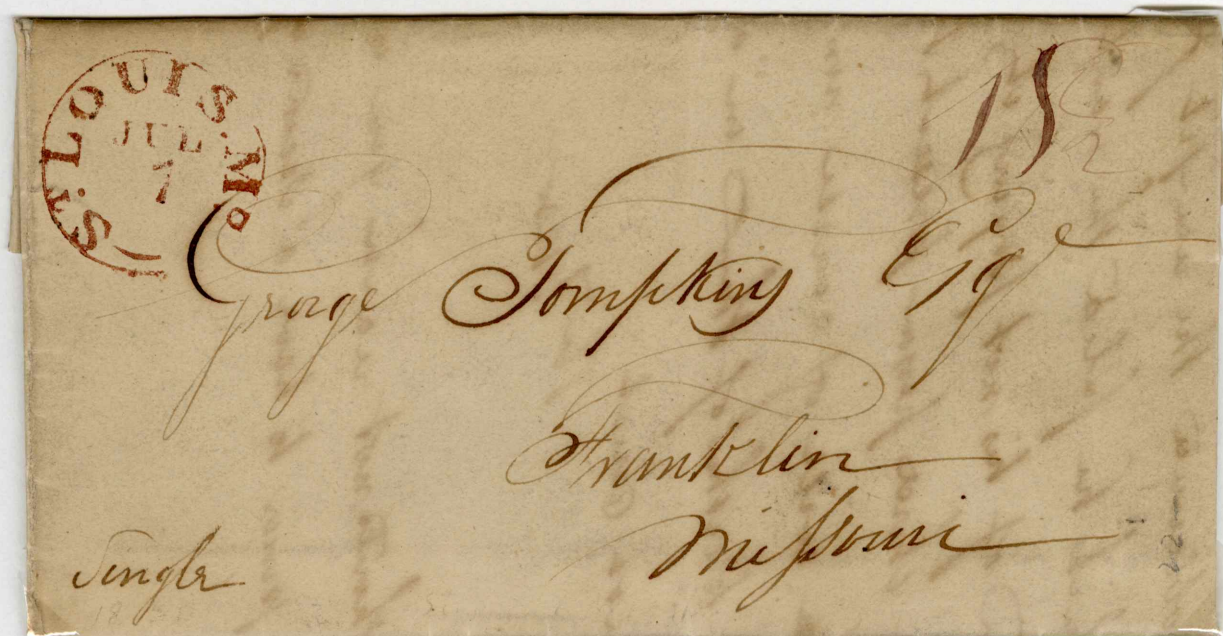 ST. LOUIS. Mo
JUL
7
18 1/2
George Tompkins Esqe
Franklin
Missouri
Single